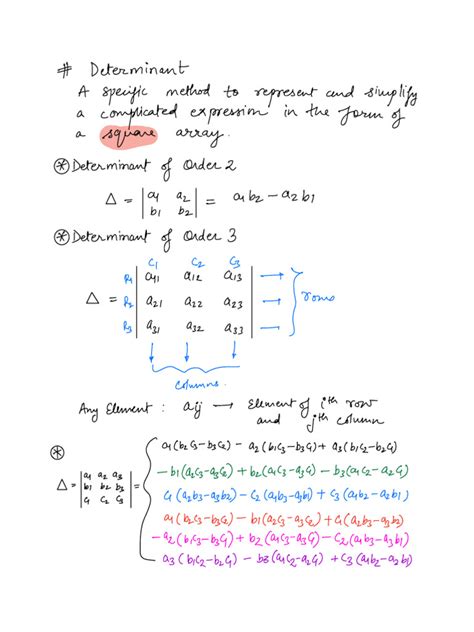 # Determinant
A specific method to represent and simplify
a complicated expression in the form of
a square array.
⊛ Determinant of Order 2
Δ = | a1 a2 | = a1b2 - a2b1
| b1 b2 |
⊛ Determinant of Order 3
C1 C2 C3
R1 | a11 a12 a13 | →
Δ = R2 | a21 a22 a23 | → } rows
R3 | a31 a32 a33 | →
columns.
Any Element : aij → Element of ith row
and jth column
⊛
a1(b2c3-b3c2) - a2(b1c3-b3c1) + a3(b1c2-b2c1)
-b1(a2c3-a3c2) + b2(a1c3-a3c1) - b3(a1c2-a2c1)
Δ = | a1 a2 a3 | =
| b1 b2 b3 |
| c1 c2 c3 |
c1(a2b3-a3b2) - c2(a1b3-a3b1) + c3(a1b2-a2b1)
a1(b2c3-b3c2) - b1(a2c3-a3c2) + c1(a2b3-a3b2)
-a2(b1c3-b3c1) + b2(a1c3-a3c1) - c2(a1b3-a3b1)
a3(b1c2-b2c1) - b3(a1c2-a2c1) + c3(a1b2-a2b1)